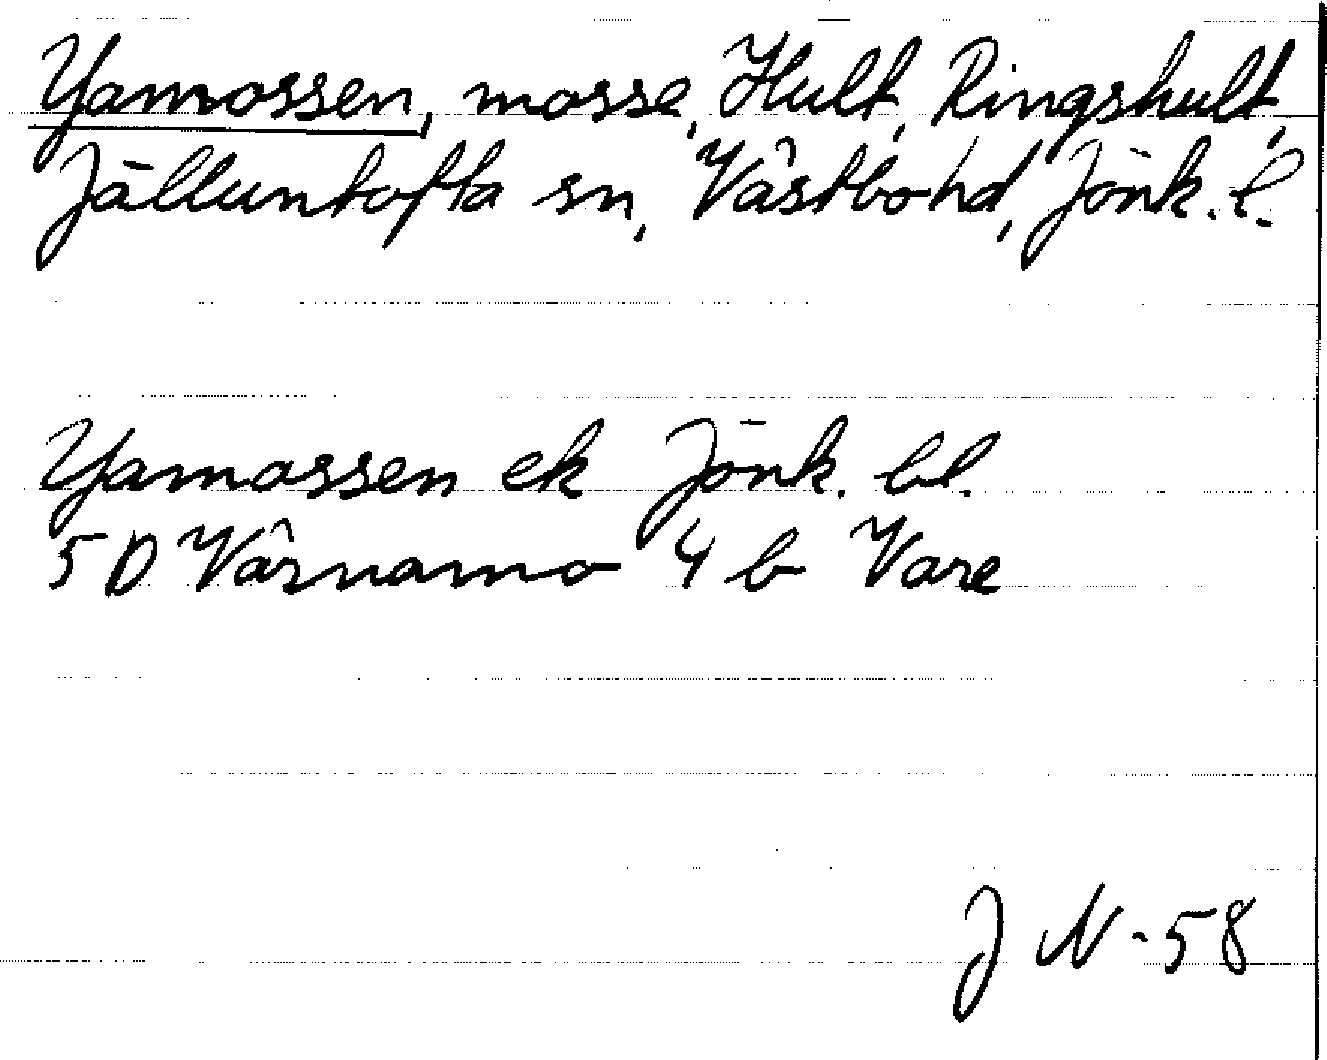 Yamossen, mosse, Hult, Ringshult,
Jälluntofta sn, Västbo hd, Jönk. l.
Yamossen ek Jönk. bl.
5 D Värnamo 4 b Vare
J N-58